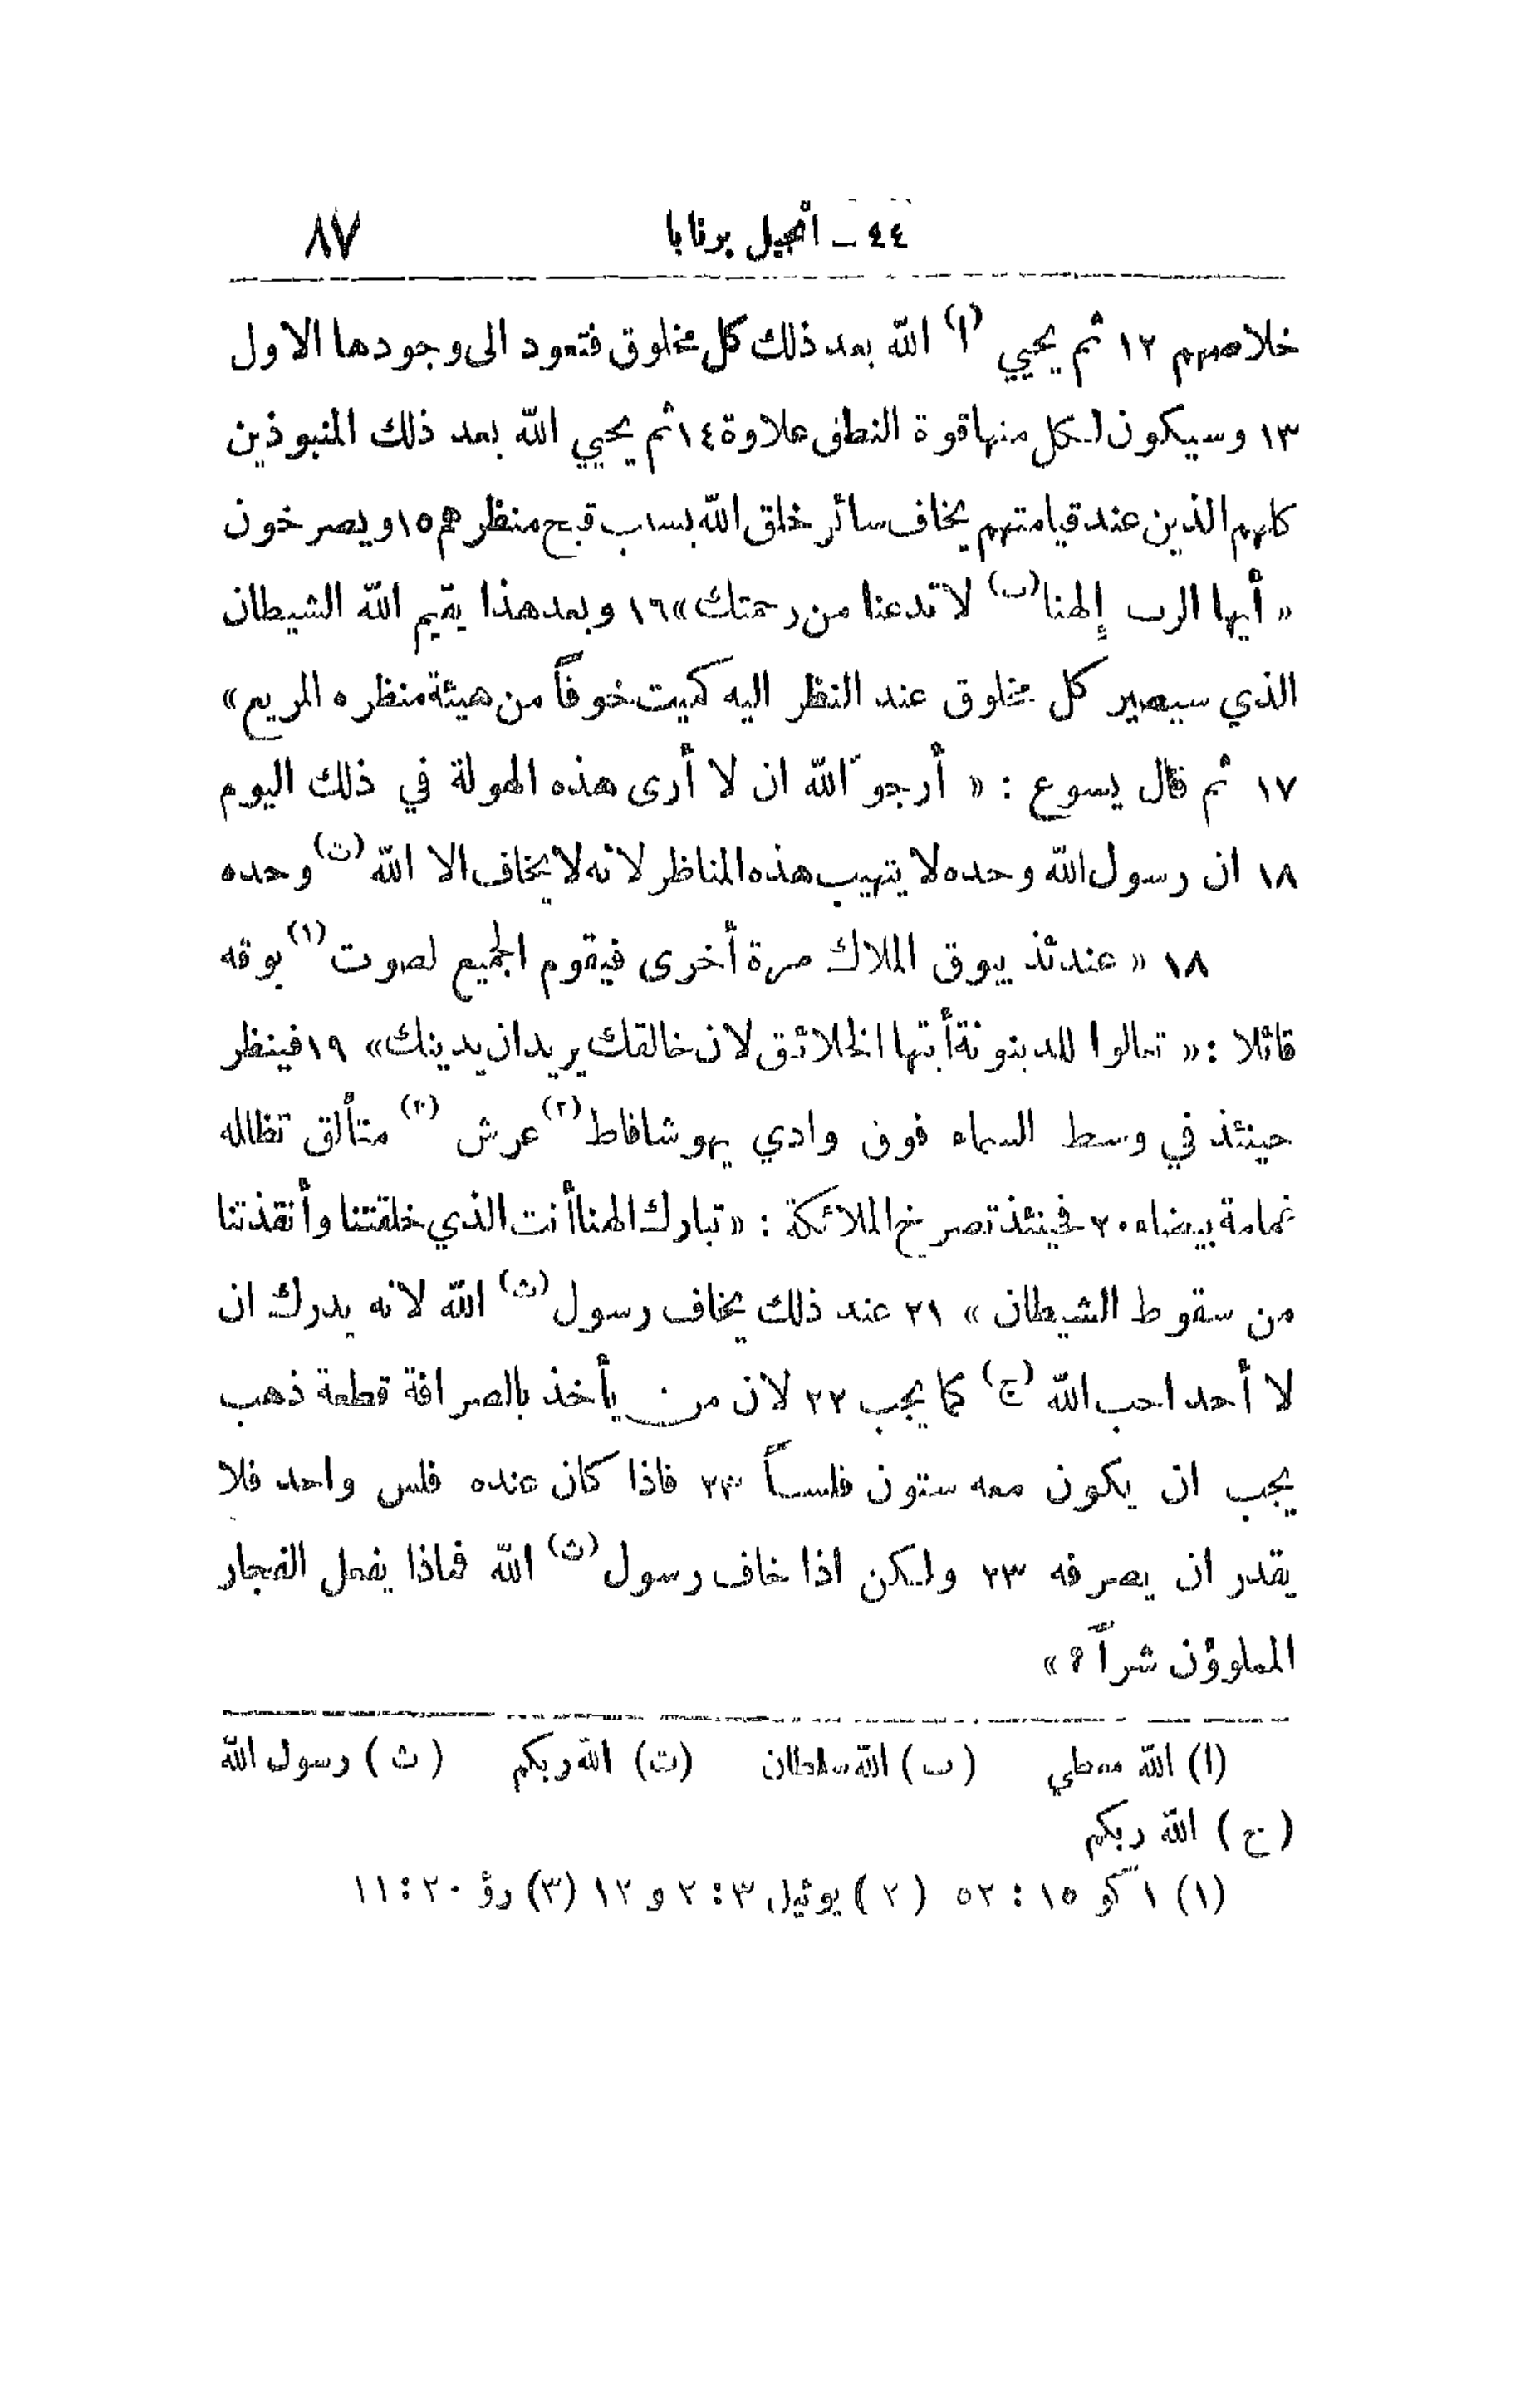 ٤٤ ــ انجيل برنابا ٨٧
خلاصهم ١٢ ثم يحيي (ا) الله بعد ذلك كل مخلوق فتعود الى وجودها الاول
١٣ وسيكون لكل منها قوة النطق علاوة ١٤ ثم يحيي الله بعد ذلك المنبوذين
كلهم الذين عند قيامتهم يخاف سائر خلق الله بسبب قبح منظرهم ١٥ ويصرخون
« أيها الرب إلهنا (ب) لا تدعنا من رحمتك » ١٦ وبعد هذا يقيم الله الشيطان
الذي سيصير كل مخلوق عند النظر اليه كميت خوفاً من هيئة منظره المريع »
١٧ ثم قال يسوع : « أرجو الله ان لا أرى هذه الهولة في ذلك اليوم
١٨ ان رسول الله وحده لا يتهيب هذه المناظر لانه لا يخاف الا الله (ت) وحده
١٨ « عندئذ يبوق الملاك مرة أخرى فيقوم الجميع لصوت (١) بوقه
قائلا : « تعالوا للدينونة أيتها الخلائق لان خالقك يريد ان يدينك » ١٩ فينظر
حينئذ في وسط السماء فوق وادي يهوشافاط (٢) عرش (٣) متألق تظلله
غمامة بيضاء ٢٠ فحينئذ تصرخ الملائكة : « تبارك الهنا أنت الذي خلقتنا وأنقذتنا
من سقوط الشيطان » ٢١ عند ذلك يخاف رسول (ث) الله لانه يدرك ان
لا أحد احب الله (ج) كما يجب ٢٢ لان من يأخذ بالصرافة قطعة ذهب
يجب ان يكون معه ستون فلساً ٢٣ فاذا كان عنده فلس واحد فلا
يقدر ان يصرفه ٢٣ ولكن اذا خاف رسول (ث) الله فماذا يفعل الفجار
المملوؤن شراً ؟ »
(ا) الله معطي (ب) الله سلطان (ت) الله ربكم (ث) رسول الله
(ج) الله ربكم
(١) ١ كو ١٥ : ٥٢ (٢) يوئيل ٣ : ٢ و ١٢ (٣) رؤ ٢٠ : ١١